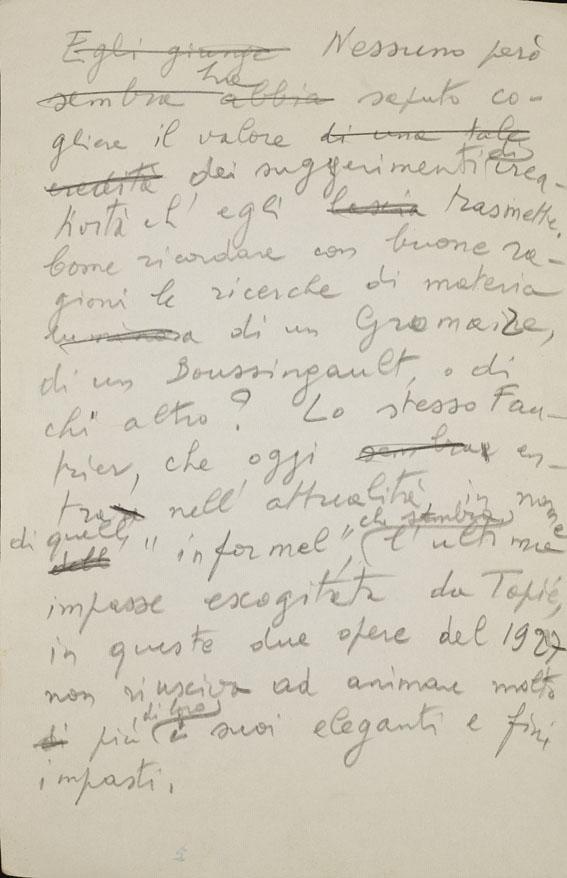 Egli giunge Nessuno però
sembra abbia ha saputo co-
gliere il valore di una tale
eredità dei suggerimenti di crea-
tività ch' egli lascia trasmette.
Come ricordare con buone ra-
gioni le ricerche di materia
luminosa di un Gromaire,
di un Boussingault, o di
chi altro? Lo stesso Fau-
trier, che oggi sembra en-
tra nell' attualità in nome
di quell' "informel", che sembra l'ultima
impasse escogitata da Tapié,
in queste due opere del 1927
non riusciva ad animare molto
di più di loro i suoi eleganti e fini
impasti.